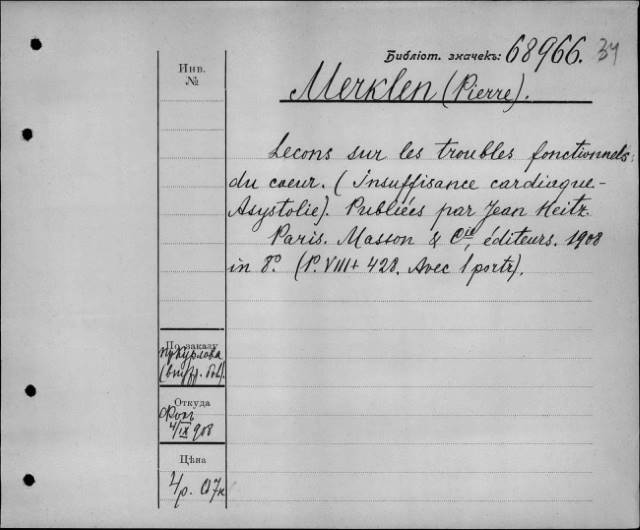 Библіот. значекъ: 68966. 34
Инв.
№
Merklen (Pierre).
Lecons sur les troubles fonctionnels
du coeur. (Insuffisance cardiaque-
Asystolie). Publiées par Jean Heitz.
Paris. Masson & Cie, éditeurs. 1908
in 8º. (P. VIII+ 428. Avec 1 portr).
По заказу
Откуда
4/IX 908
Цѣна
4 р. 07к